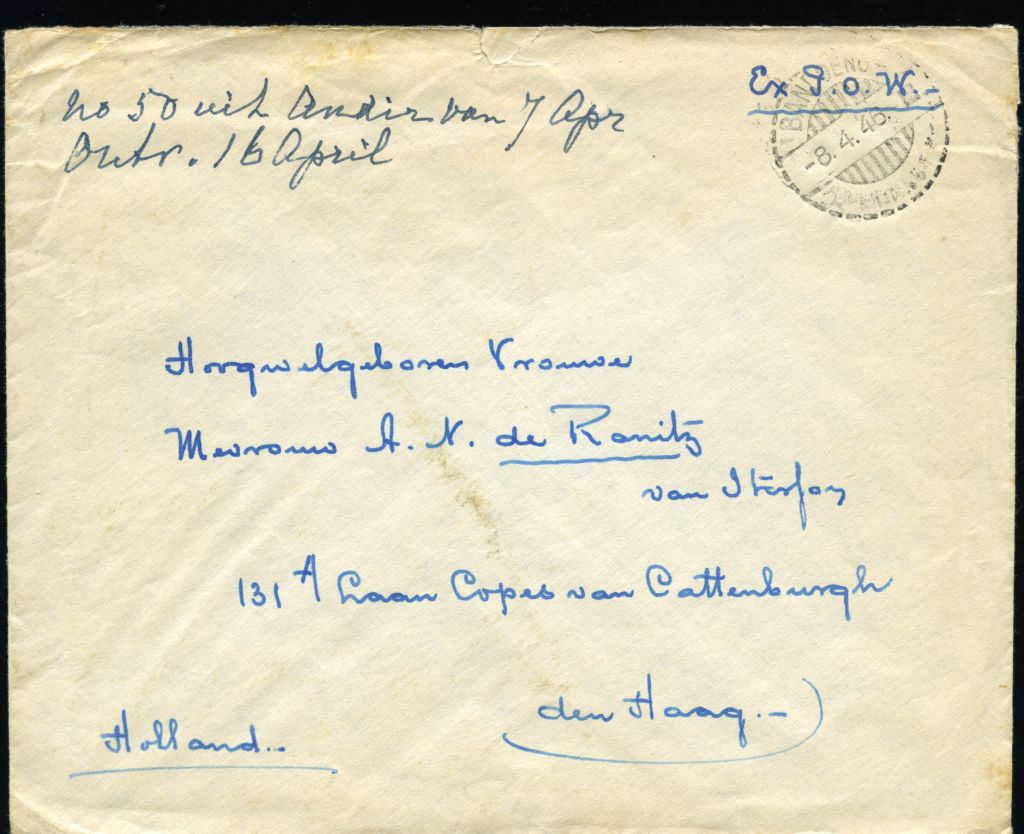 no 50 uit Andir van 7 Apr
Ontv. 16 April
Ex P.o.W.-
BANDOENG
-8.4.46.
Hoogwelgeboren Vrouwe
Mevrouw A. N. de Ranitz
van
131 A Laan Copes van Cattenburgh
den Haag.-
Holland..